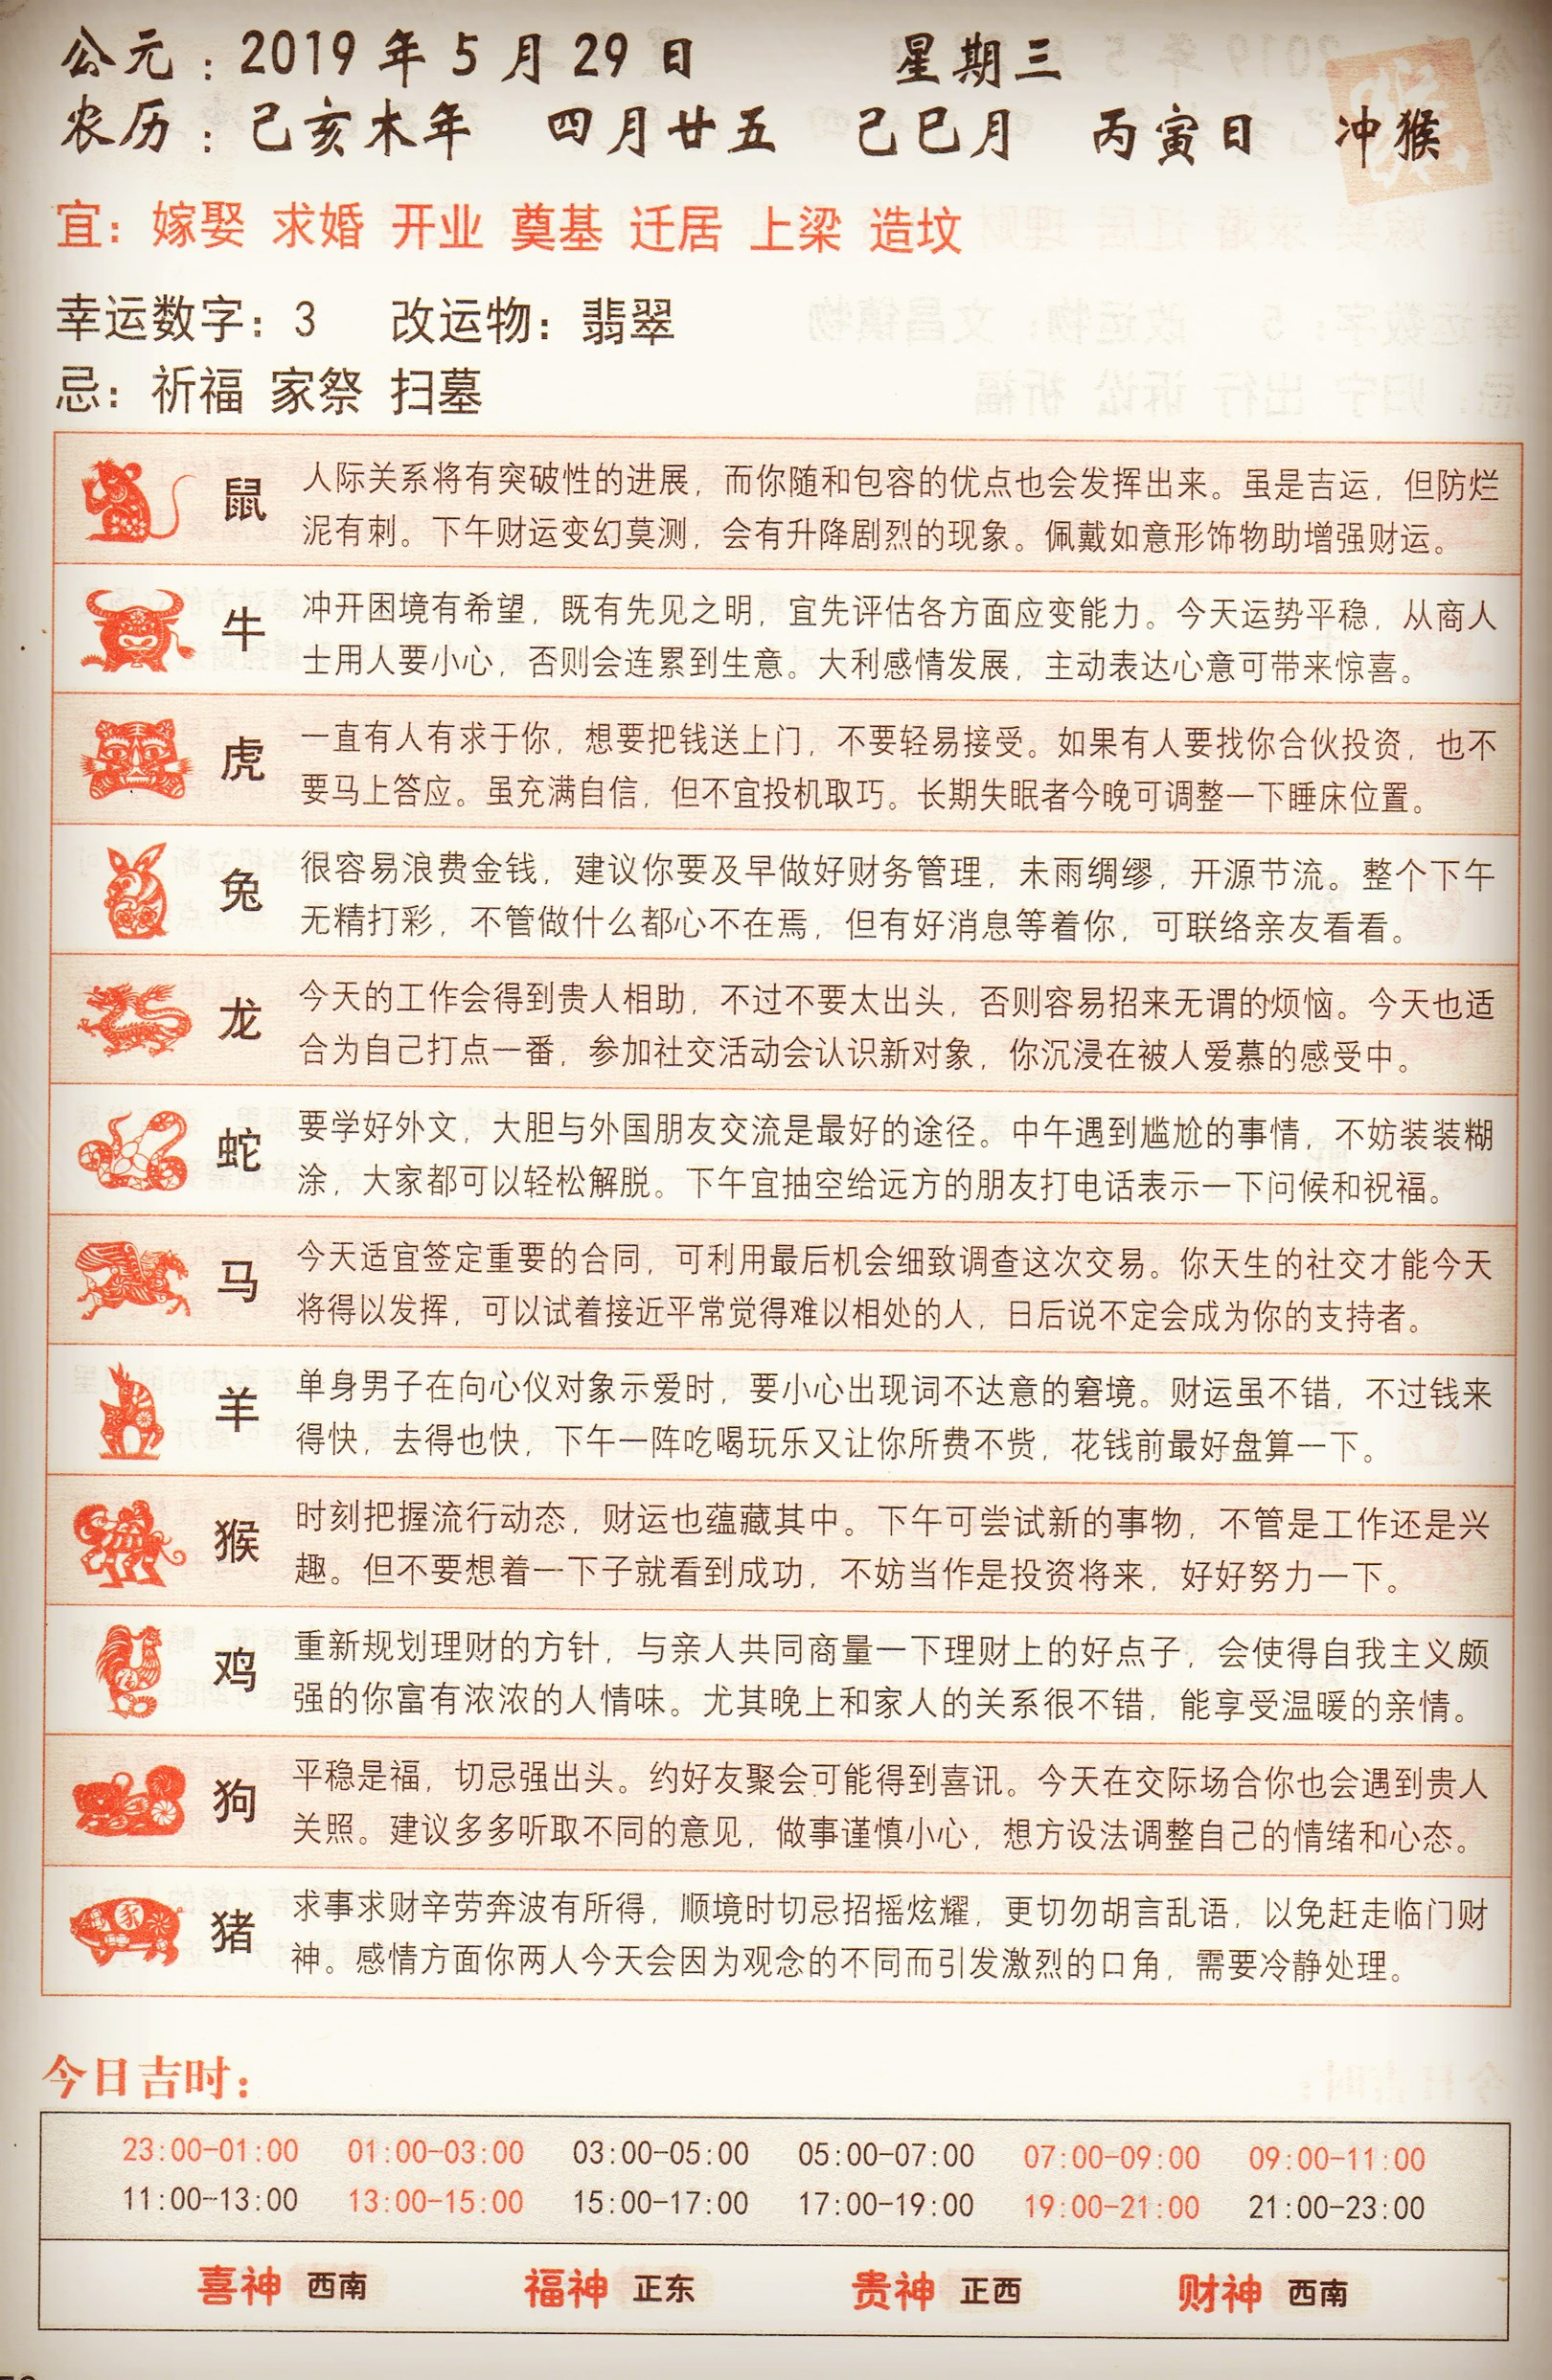 公元：2019年5月29日 星期三
农历：己亥木年 四月廿五 己巳月 丙寅日 冲猴
宜：嫁娶 求婚 开业 奠基 迁居 上梁 造坟
幸运数字：3 改运物：翡翠
忌：祈福 家祭 扫墓
鼠 人际关系将有突破性的进展，而你随和包容的优点也会发挥出来。虽是吉运，但防烂
泥有刺。下午财运变幻莫测，会有升降剧烈的现象。佩戴如意形饰物助增强财运。
牛 冲开困境有希望，既有先见之明，宜先评估各方面应变能力。今天运势平稳，从商人
士用人要小心，否则会连累到生意。大利感情发展，主动表达心意可带来惊喜。
虎 一直有人有求于你，想要把钱送上门，不要轻易接受。如果有人要找你合伙投资，也不
要马上答应。虽充满自信，但不宜投机取巧。长期失眠者今晚可调整一下睡床位置。
兔 很容易浪费金钱，建议你要及早做好财务管理，未雨绸缪，开源节流。整个下午
无精打彩，不管做什么都心不在焉，但有好消息等着你，可联络亲友看看。
龙 今天的工作会得到贵人相助，不过不要太出头，否则容易招来无谓的烦恼。今天也适
合为自己打点一番，参加社交活动会认识新对象，你沉浸在被人爱慕的感受中。
蛇 要学好外文，大胆与外国朋友交流是最好的途径。中午遇到尴尬的事情，不妨装装糊
涂，大家都可以轻松解脱。下午宜抽空给远方的朋友打电话表示一下问候和祝福。
马 今天适宜签定重要的合同，可利用最后机会细致调查这次交易。你天生的社交才能今天
将得以发挥，可以试着接近平常觉得难以相处的人，日后说不定会成为你的支持者。
羊 单身男子在向心仪对象示爱时，要小心出现词不达意的窘境。财运虽不错，不过钱来
得快，去得也快，下午一阵吃喝玩乐又让你所费不赀，花钱前最好盘算一下。
猴 时刻把握流行动态，财运也蕴藏其中。下午可尝试新的事物，不管是工作还是兴
趣。但不要想着一下子就看到成功，不妨当作是投资将来，好好努力一下。
鸡 重新规划理财的方针，与亲人共同商量一下理财上的好点子，会使得自我主义颇
强的你富有浓浓的人情味。尤其晚上和家人的关系很不错，能享受温暖的亲情。
狗 平稳是福，切忌强出头。约好友聚会可能得到喜讯。今天在交际场合你也会遇到贵人
关照。建议多多听取不同的意见，做事谨慎小心，想方设法调整自己的情绪和心态。
猪 求事求财辛劳奔波有所得，顺境时切忌招摇炫耀，更切勿胡言乱语，以免赶走临门财
神。感情方面你两人今天会因为观念的不同而引发激烈的口角，需要冷静处理。
今日吉时：
23:00-01:00 01:00-03:00 03:00-05:00 05:00-07:00 07:00-09:00 09:00-11:00
11:00-13:00 13:00-15:00 15:00-17:00 17:00-19:00 19:00-21:00 21:00-23:00
喜神 西南 福神 正东 贵神 正西 财神 西南